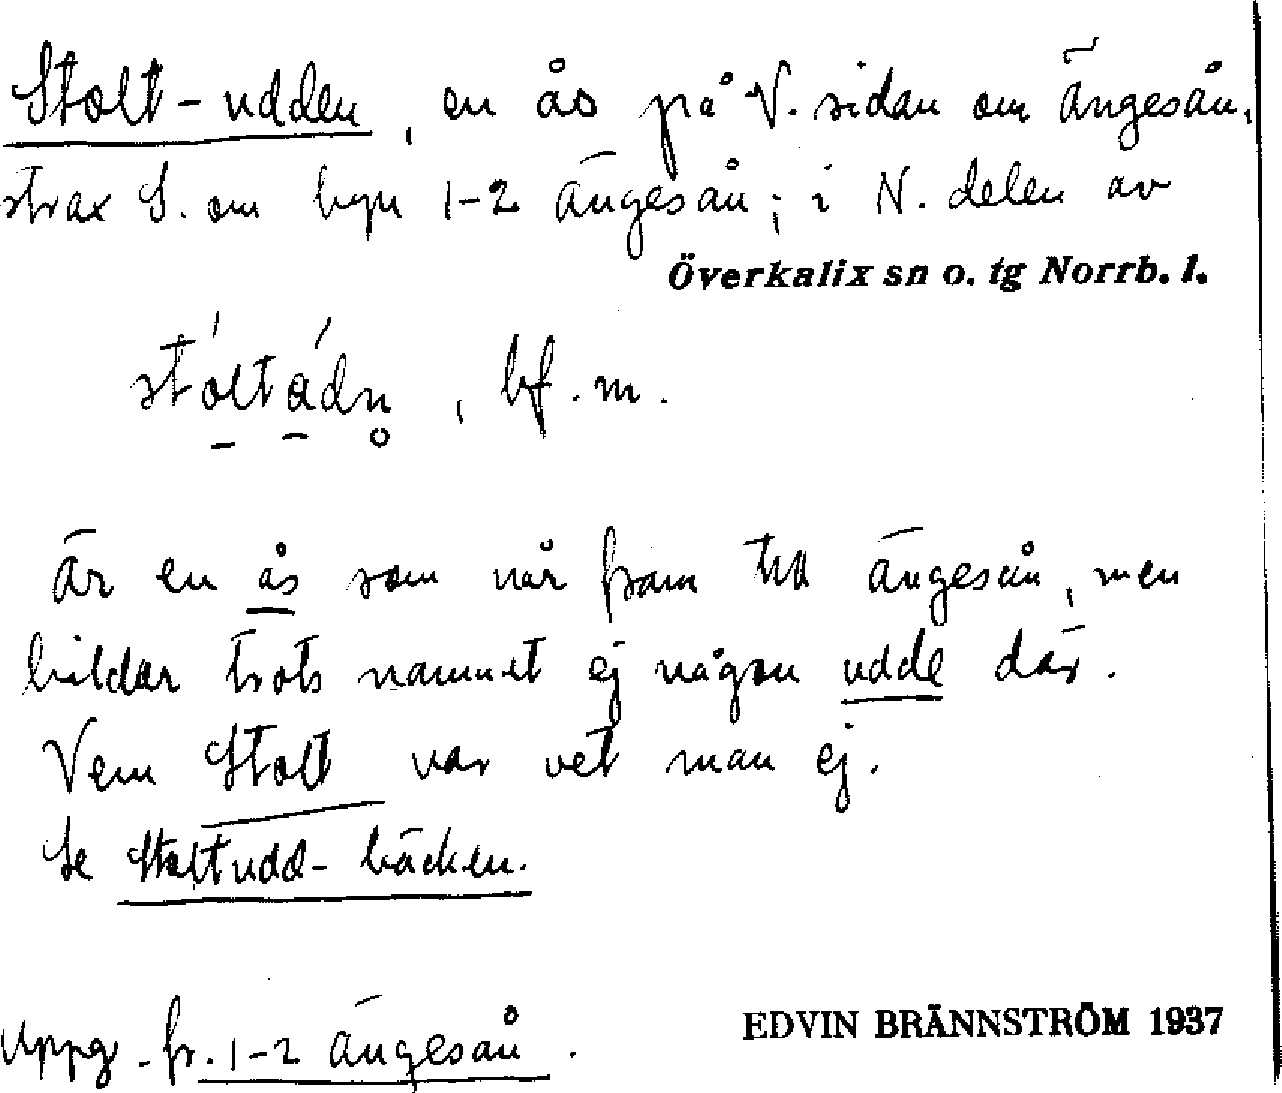 Stolt-udden, en ås på V. sidan om Ängesån,
strax S. om byn 1-2 Ängesån; i N. delen av
Överkalix sn o. tg Norrb. l.
stóltádn̥, bf. m.
Är en ås som når fram till Ängesån, men
bildar trots namnet ej någon udde där.
Vem Stolt var vet man ej.
Se Stoltudd-bäcken.
Uppg. fr. 1-2 Ängesån.
EDVIN BRÄNNSTRÖM 1937